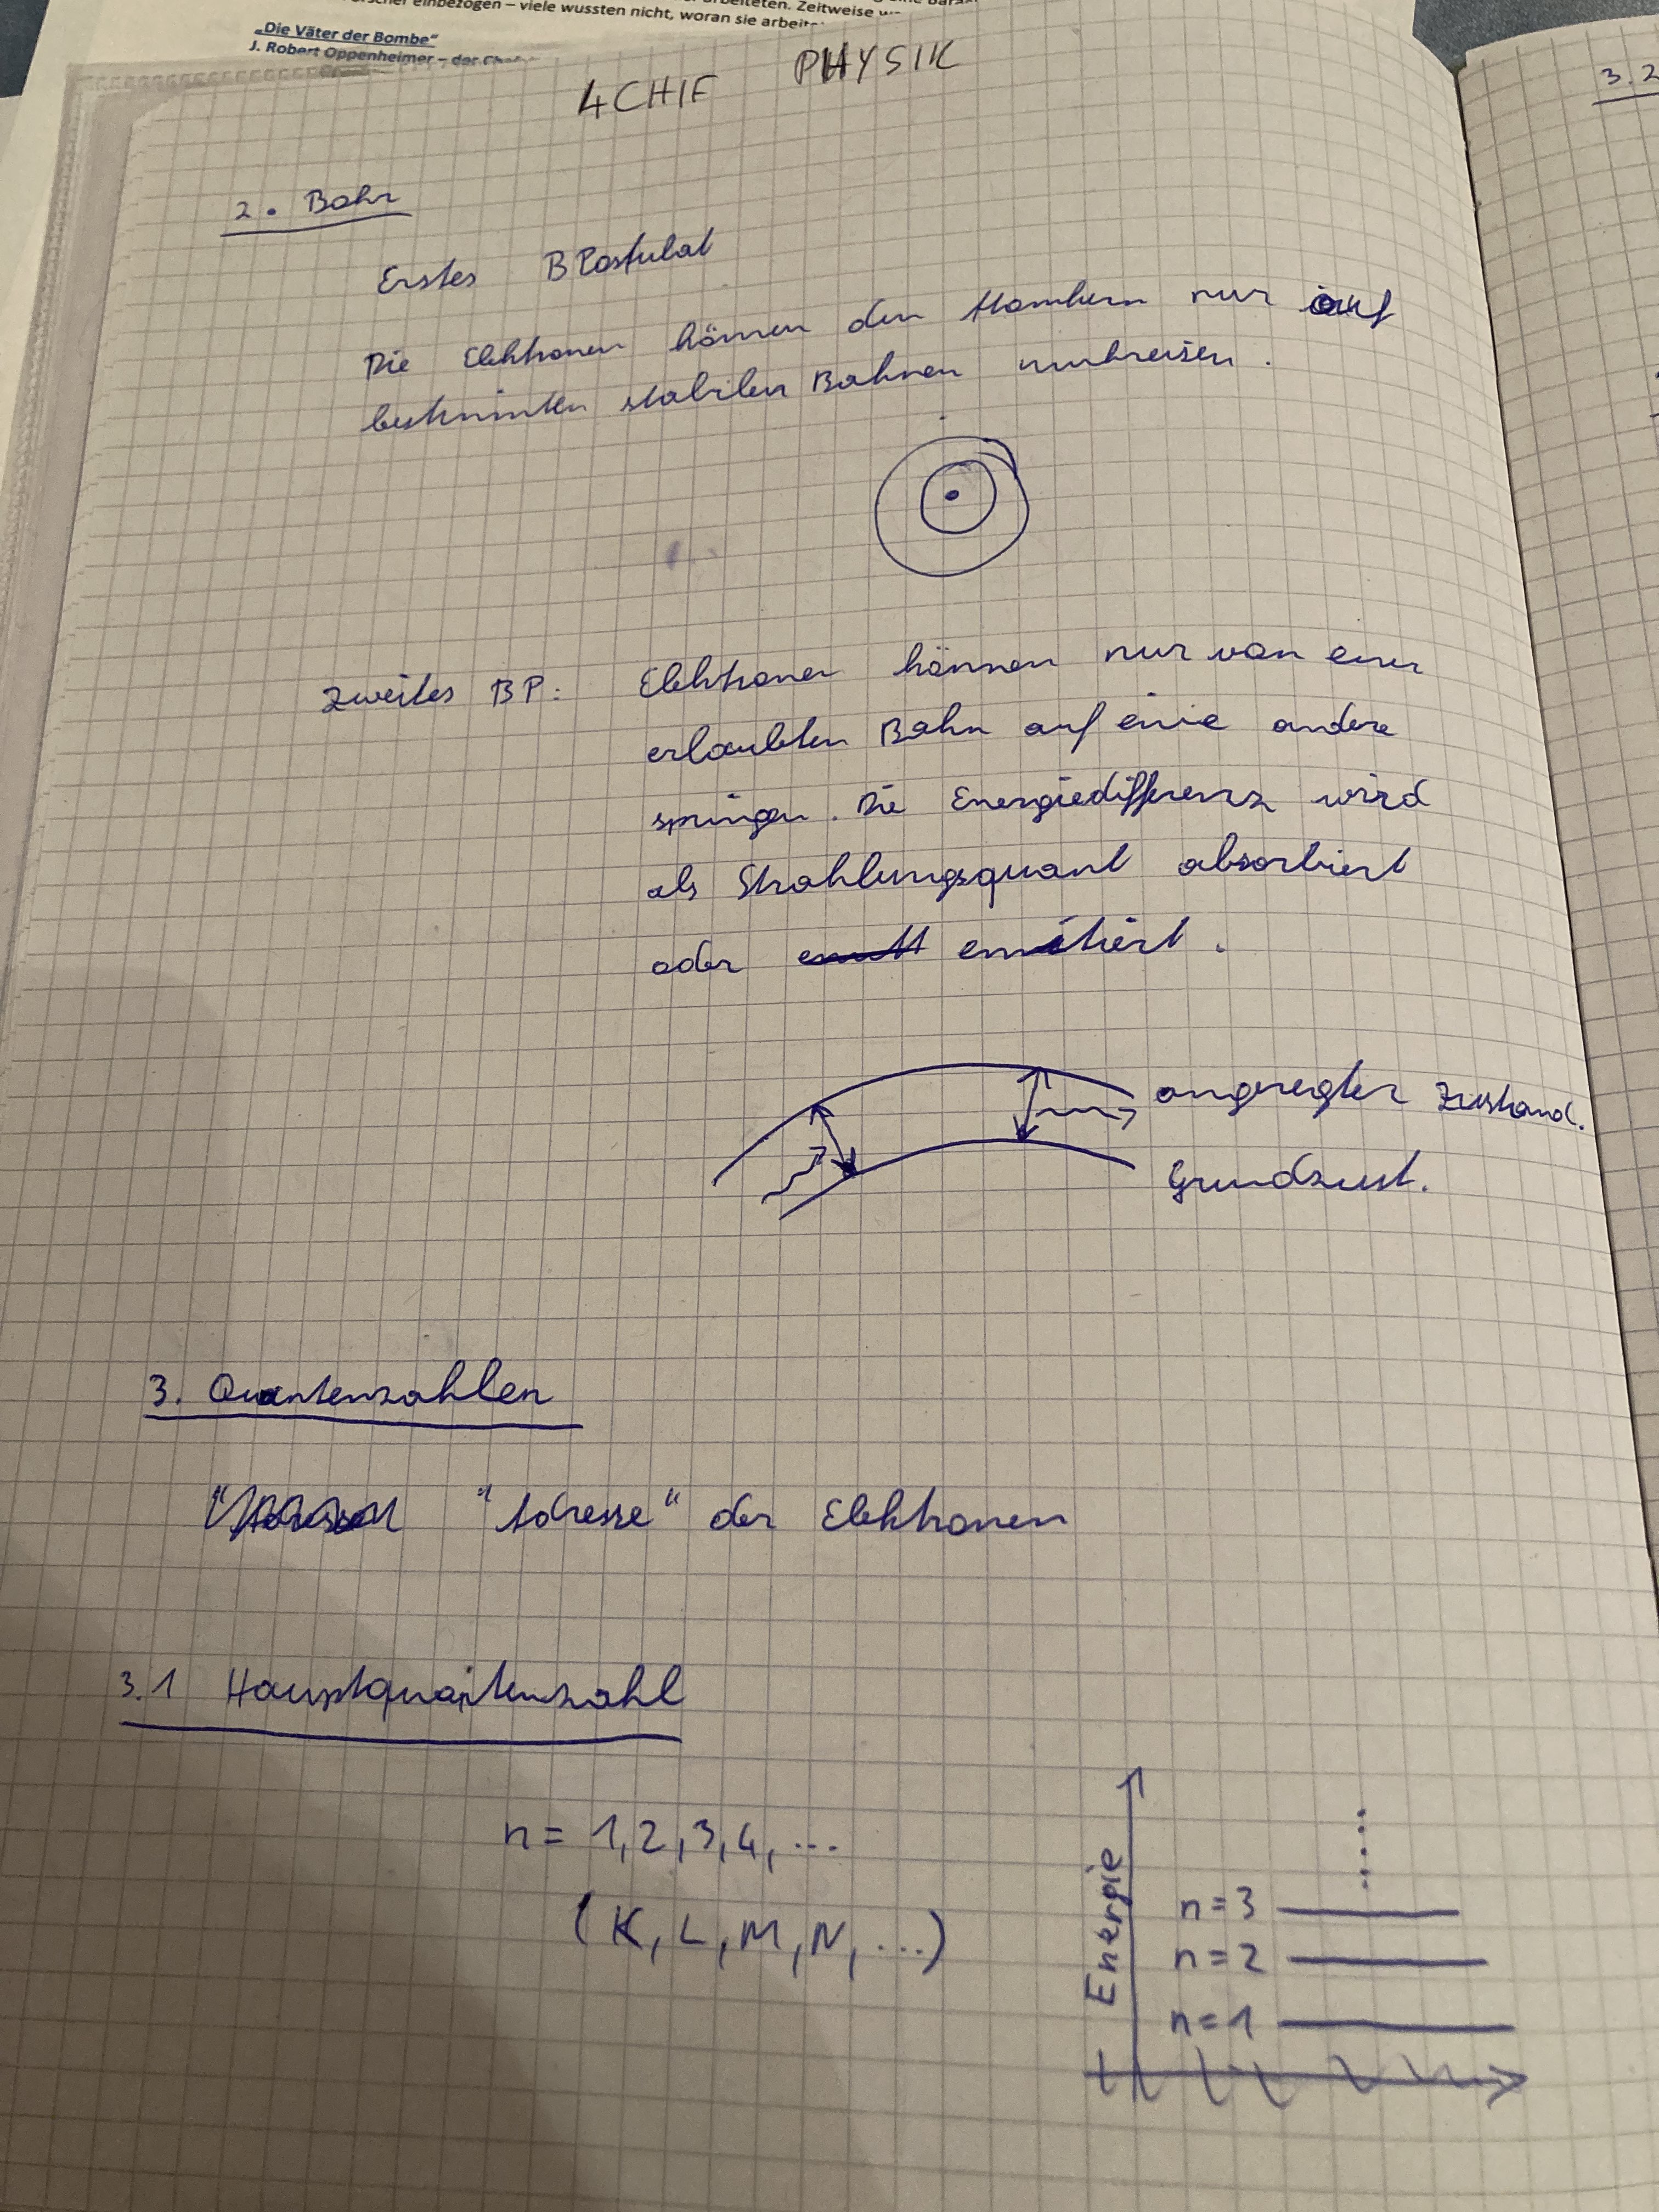 arbeiteten. Zeitweise
einbezogen – viele wussten nicht, woran sie
„Die Väter der Bombe“
J. Robert Oppenheimer – der
4CHIF PHYSIK
3.2
2. Bohr
Erstes B Postulat
Die Elektronen können den Atomkern nur auf
bestimmten stabilen Bahnen umkreisen.
Zweites BP: Elektronen können nur von einer
erlaubten Bahn auf eine andere
springen. Die Energiedifferenz wird
als Strahlungsquant absorbiert
oder emitiert.
angeregter Zustand.
Grundzust.
3. Quantenzahlen
"Adresse" der Elektronen
3.1 Hauptquantenzahl
n = 1,2,3,4, ...
(K, L, M, N, ...)
Energie
n=3
n=2
n=1